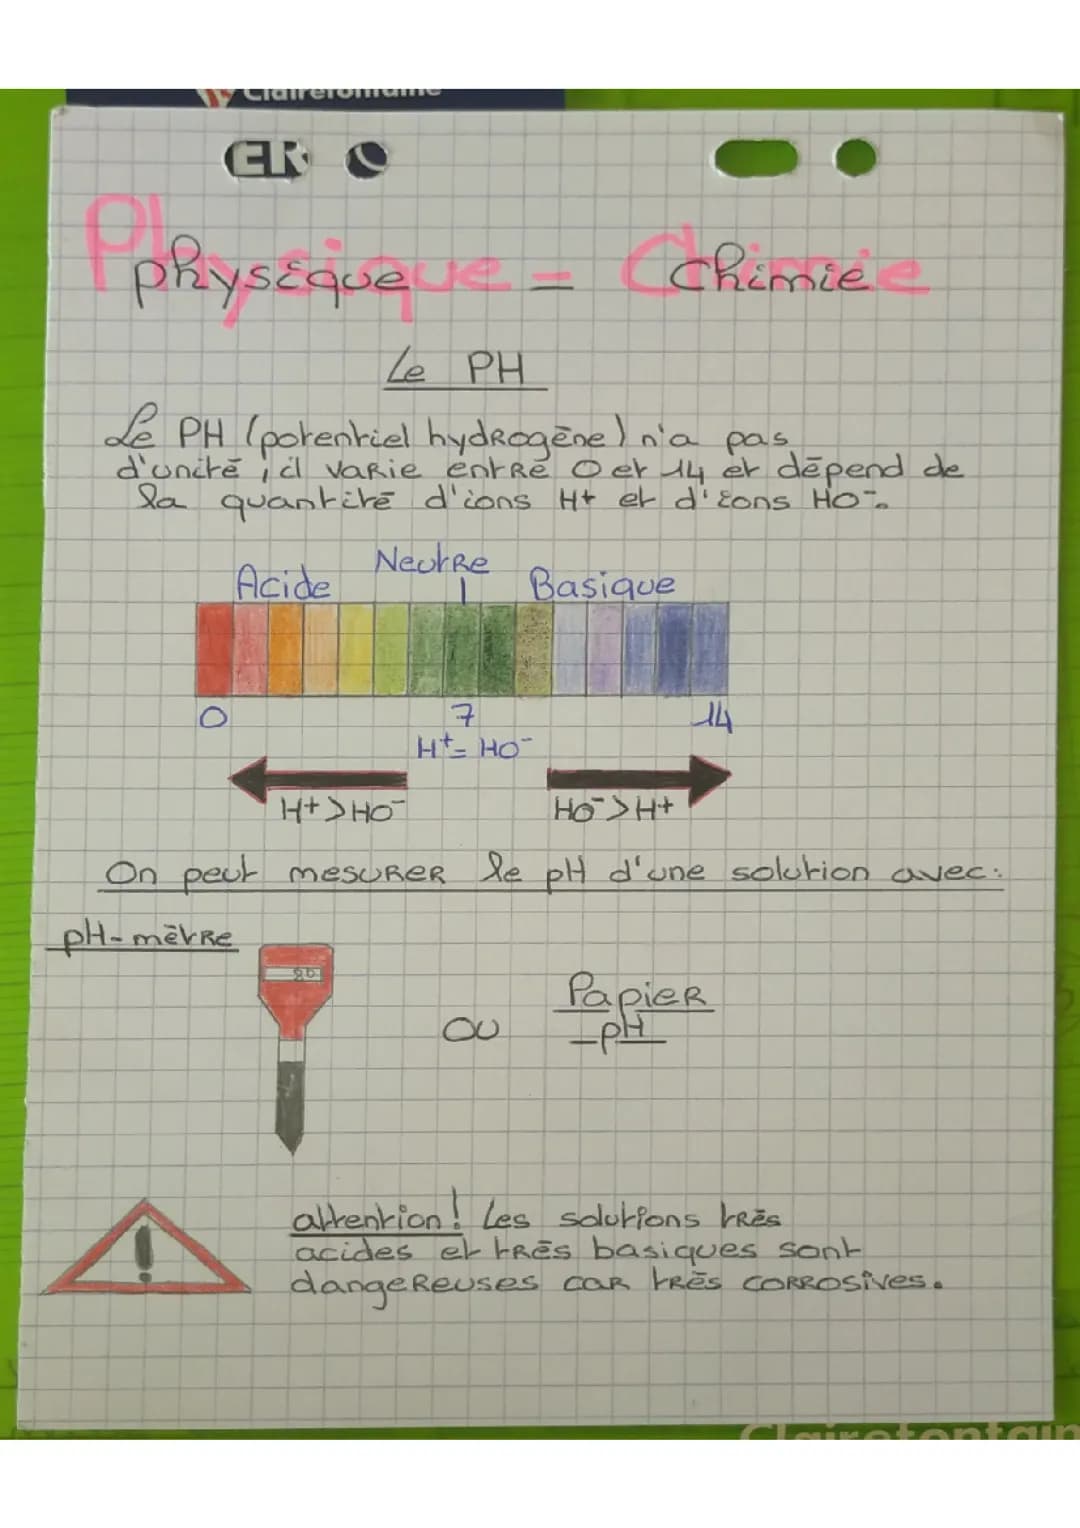 Clairefontaine
ER
Physique - Chimie
physique - Chimie
Le PH
Le PH (potentiel hydrogène) n'a pas
d'unité, il varie entre 0 et 14 et dépend de
la quantité d'ions H+ et d'ions HO-.
Acide Neutre Basique
0 7 14
H+ = HO-
H+ > HO- HO- > H+
On peut mesurer le pH d'une solution avec:
pH-mètre
ou
Papier
-pH
attention! Les solutions très
acides et très basiques sont
dangereuses car très corrosives.
Clairefontain